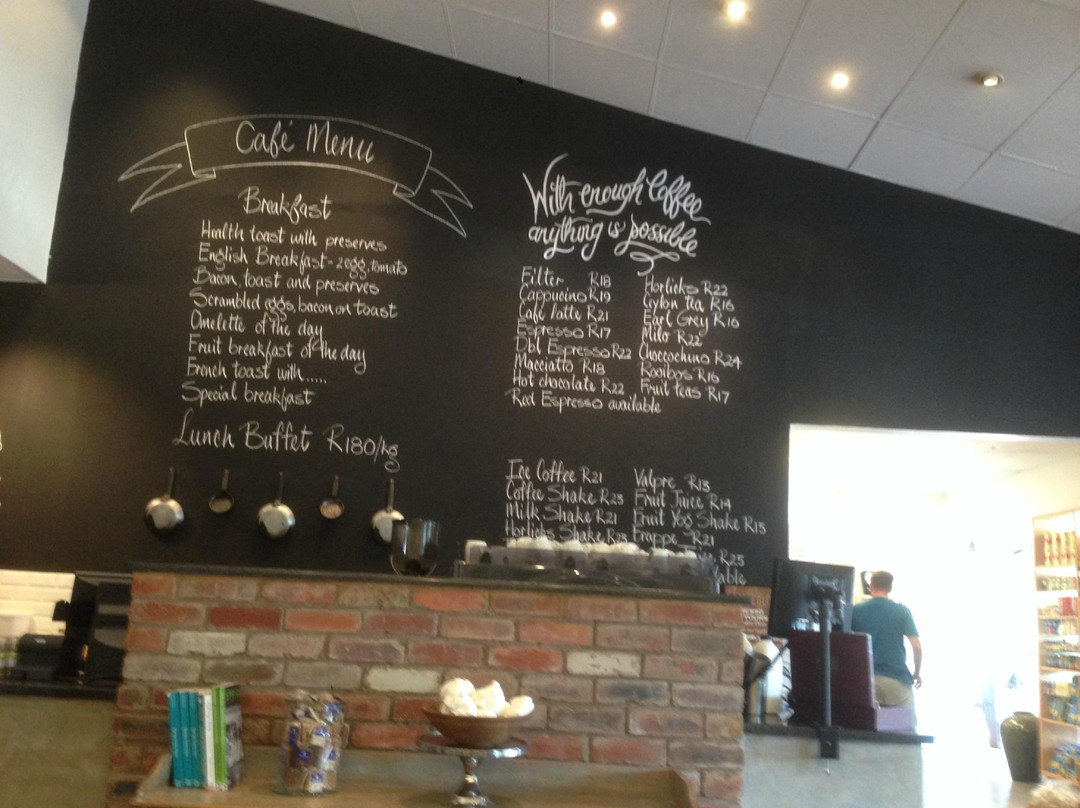 Café Menu
Breakfast
Health toast with preserves
English Breakfast - 2egg, tomato
Bacon, toast and preserves
Scrambled eggs, bacon on toast
Omelette of the day
Fruit breakfast of the day
French toast with.....
Special breakfast
Lunch Buffet R180/kg
With enough Coffee
anything is possible
Filter R18
Cappucino R19
Café latte R21
Espresso R17
Dbl Espresso R22
Macciatto R18
Hot chocolate R22
Red Espresso available
Horlicks R22
Ceylon tea R16
Earl Grey R16
Milo R22
Choccochino R24
Rooibos R16
Fruit teas R17
Ice Coffee R21
Coffee Shake R23
Milk Shake R21
Horlicks Shake R23
Valpre R13
Fruit Juice R14
Fruit Yog Shake R15
Frappe R21
R25